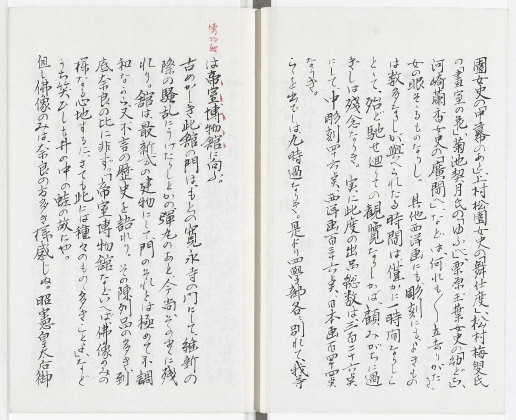 園女史の「申幕のあと」上村松園女史の「舞仕度」、松村梅叟氏
の「畫室の花」、菊池契月氏の「ゆふべ」、栗原玉葉女史の「幼どち」、
河崎蘭香女史の「廣間へ」などは何れも
女の眼そゝるものなりし。其他西洋画にも彫刻にもよきもの
は数多なりしが與へられたる時間は僅か二時間なりし
とて、殆ど馳せ廻りての観覧なりしかば、顧みがちに過
ぎしは残念なりき。実に此度の出品総数は三百二十六点
にして中彫刻四十六点西洋画百三十六点日本画百四十四点
なりき。
らを出でしは九時過なりき。是より四学部各〻別れて我等
は帝室博物館に向ふ。
博物館
古めかしき此館の門はもとの寛永寺の門にして維新の
際の騒乱にうけたりしとかの弾丸のあと、今尚その中に残
れり。館は最新式の建物にして門のそれとは極めて不調
和なりかし又不言の歴史を語れり。その陳列品の多き到
底奈良の比に非ず「帝室博物館ならいへば佛像のみの
様なる心地するに、さても此には種々のもの多きこと」など
うち笑ひしも井の中の蛙の故にや。
但し佛像のみは奈良の方多き様感じぬ。昭憲皇太后御